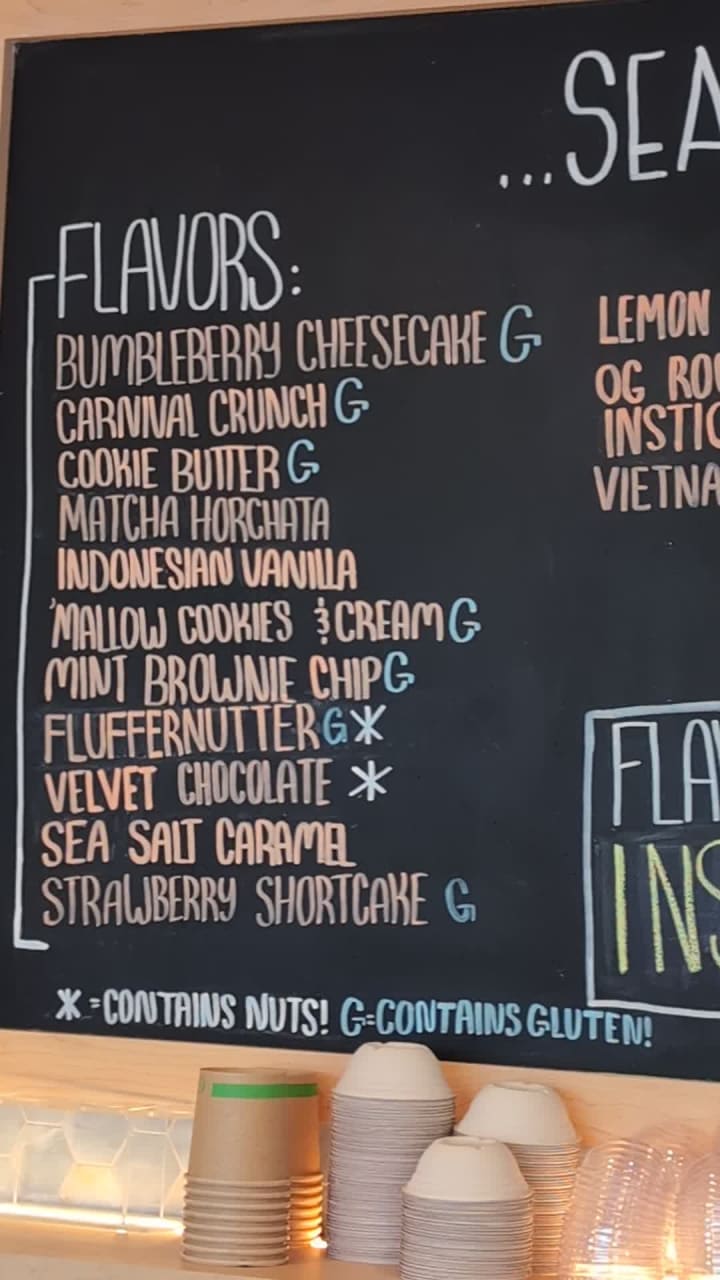 ...SEA
FLAVORS:
BUMBLEBERRY CHEESECAKE G
CARNIVAL CRUNCH G
COOKIE BUTTER G
MATCHA HORCHATA
INDONESIAN VANILLA
'MALLOW COOKIES & CREAM G
MINT BROWNIE CHIP G
FLUFFERNUTTER G *
VELVET CHOCOLATE *
SEA SALT CARAMEL
STRAWBERRY SHORTCAKE G
* = CONTAINS NUTS! G=CONTAINS GLUTEN!
LEMON
OG RO
INSTI
VIETNA
FLA
INS